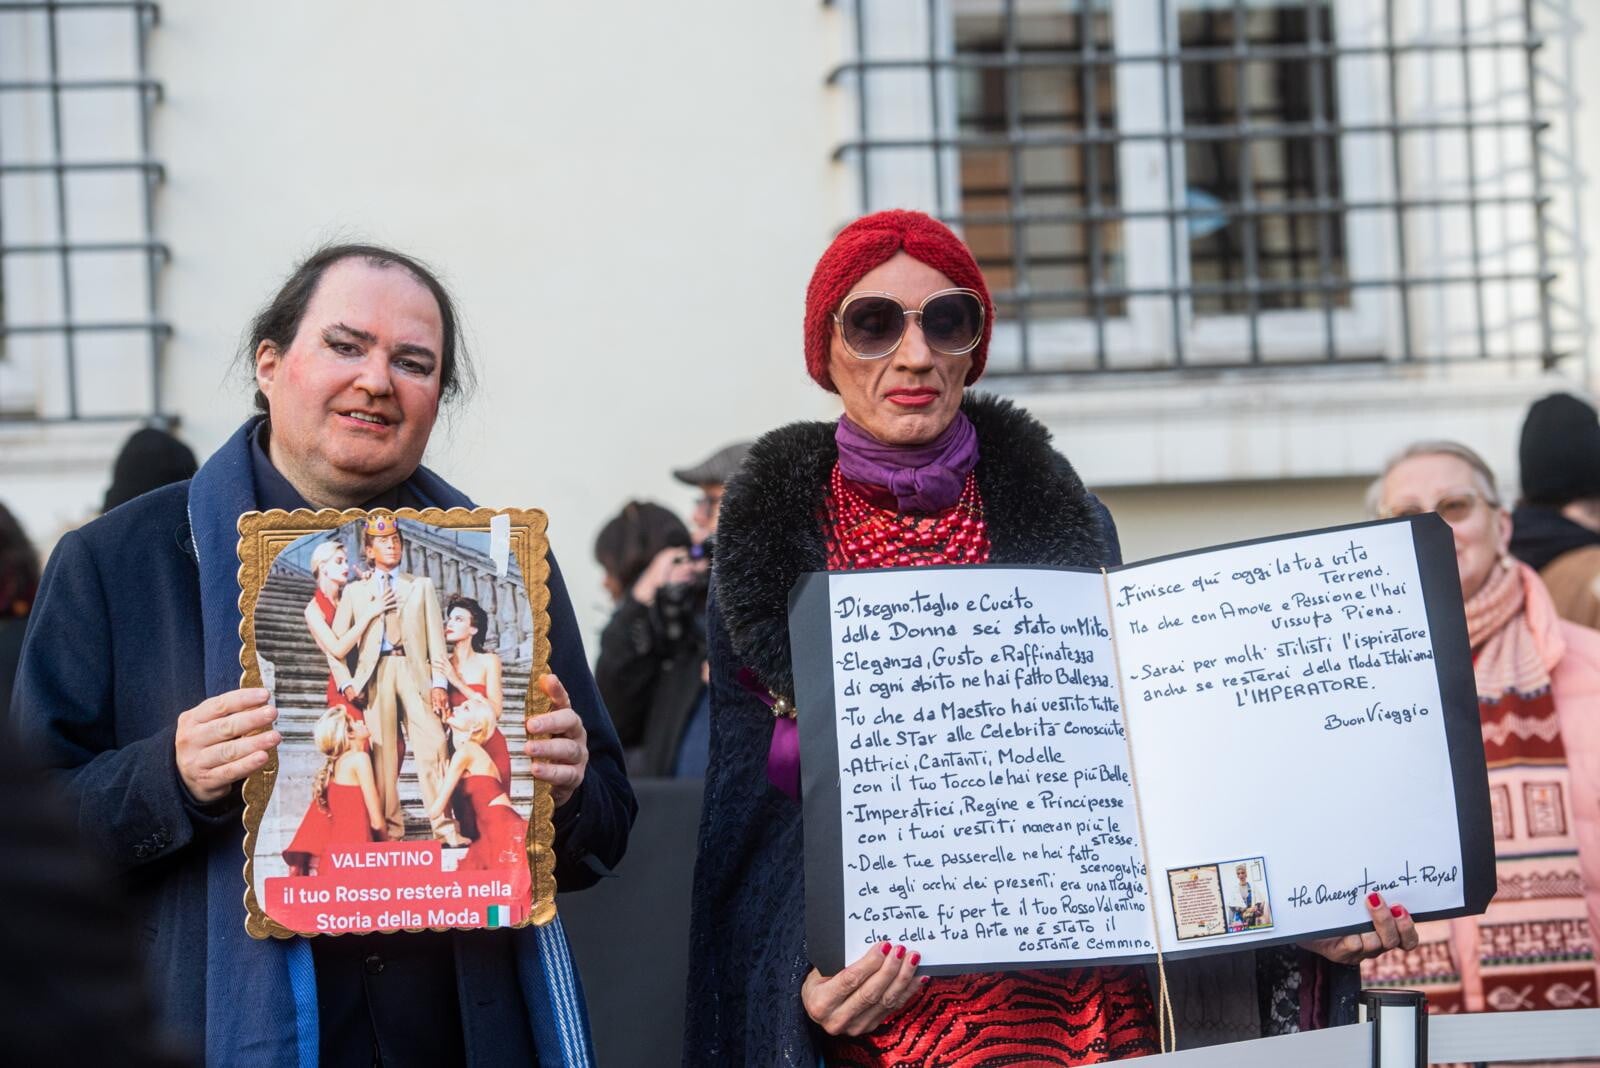 VALENTINO
il tuo Rosso resterà nella
Storia della Moda
~Disegno, Taglio e Cucito
della Donna sei stato un Mito.
~Eleganza, Gusto e Raffinatezza
di ogni abito ne hai fatto Bellezza.
~Tu che da Maestro hai vestito Tutte
dalle STar alle Celebrità Conosciute.
~Attrici, Cantanti, Modelle
con il tuo tocco le hai rese più Belle.
~Imperatrici, Regine e Principesse
con i tuoi vestiti non eran più le
stesse.
~Delle tue passerelle ne hai fatto
scenografia
che agli occhi dei presenti era una Magia.
~Costante fù per te il tuo Rosso Valentino
che della tua Arte ne è stato il
costante Cammino.
~Finisce quì oggi la tua vita
Terrena.
Ma che con Amore e Passione l'hai
Vissuta Piena.
~Sarai per molti stilisti l'ispiratore
anche se resterai della Moda Italiana
L'IMPERATORE.
Buon Viaggio
the Queen
Royal